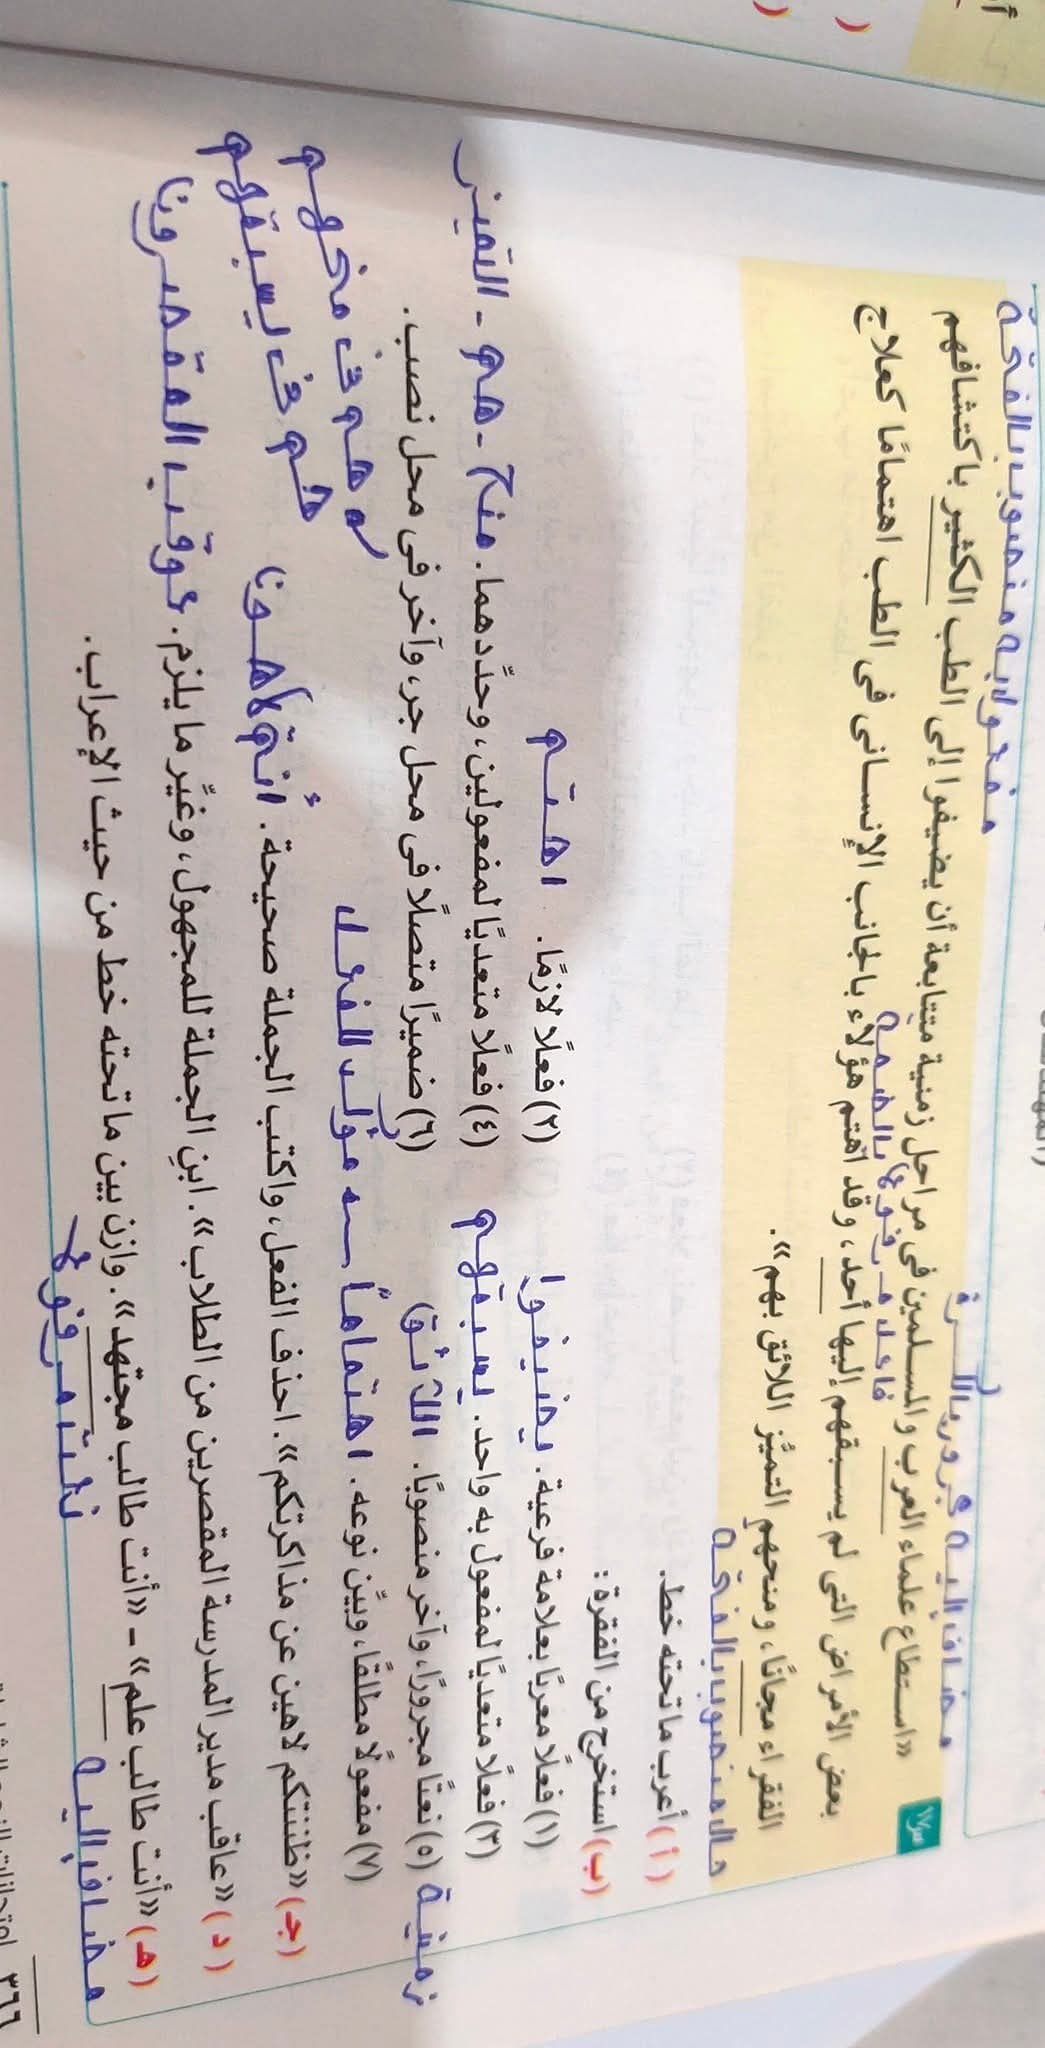 مفعول به منصوب بالفتحة
مضاف إليه مجرور بالكسرة
س٧ «استطاع علماء العرب والمسلمين فى مراحل زمنية متتابعة أن يضيفوا إلى الطب الكثير باكتشافهم
فاعل مرفوع بالضمة
بعض الأمراض التى لم يسبقهم إليها أحد، وقد اهتم هؤلاء بالجانب الإنسانى فى الطب اهتمامًا كعلاج
الفقراء مجانًا، ومنحهم التميُّز اللائق بهم».
حال منصوب بالفتحة
(أ) أعرب ما تحته خط.
(ب) استخرج من الفقرة:
(١) فعلًا معربًا بعلامة فرعية. يضيفوا (٢) فعلًا لازمًا. اهتم
(٣) فعلًا متعديًا لمفعول به واحد. يسبقهم (٤) فعلًا متعديًا لمفعولين، وحدِّدهما. منح - هم - التميز
زمنية (٥) نعتًا مجرورًا، وآخر منصوبًا. (٦) ضميرًا متصلًا فى محل جر، وآخر فى محل نصب.
هم فى منحهم
(٧) مفعولًا مطلقًا، وبيِّن نوعه. اهتمامًا مؤكد للفعل
هم فى يسبقهم
(جـ) «ظننتكم لاهين عن مذاكرتكم». احذف الفعل، واكتب الجملة صحيحة. أنتم لاهون
(د) «عاقب مدير المدرسة المقصرين من الطلاب». ابنِ الجملة للمجهول، وغيِّر ما يلزم. عوقب المقصرون
(هـ) «أنت طالب علم» - «أنت طالب مجتهد». وازن بين ما تحته خط من حيث الإعراب.
مضاف إليه نعت مرفوع
٣٦٦